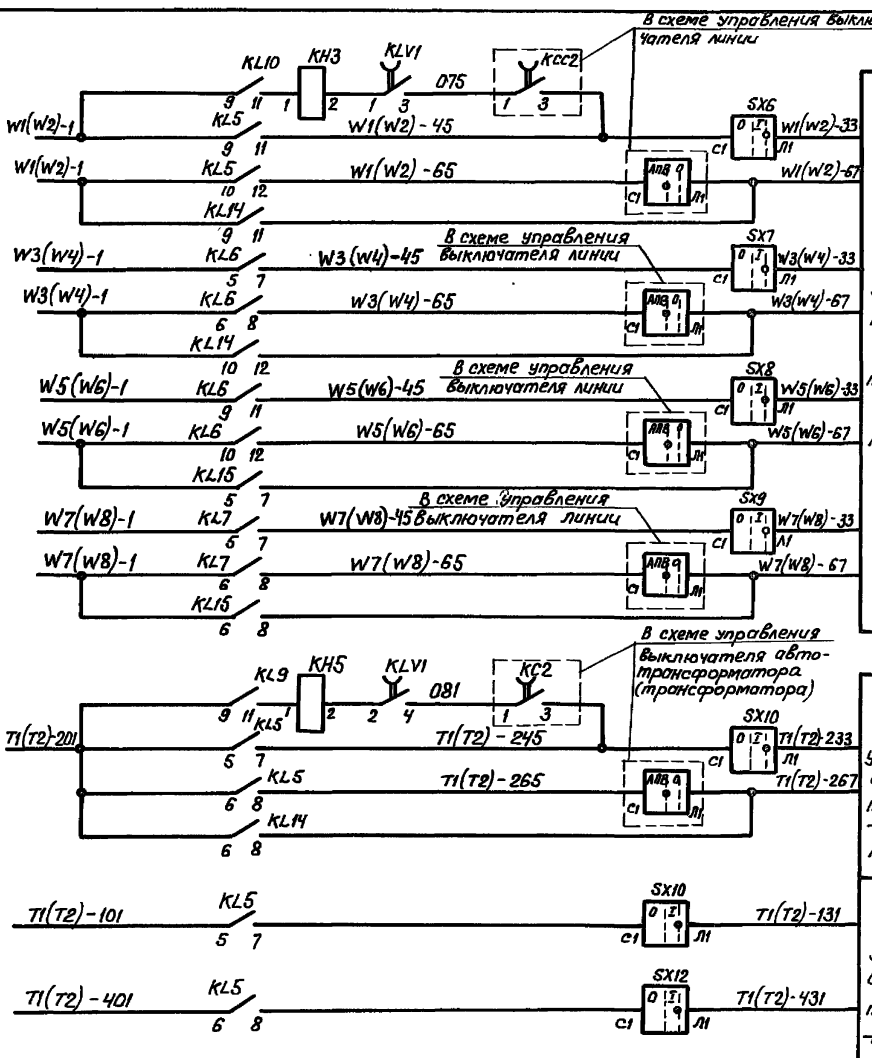 В схеме управления выклю
чателя линии
KL10 KH3 KLV1 075 KCC2
9 11 1 2 1 3 1 3
W1(W2)-1 KL5 W1(W2)-45 SX6 0 I W1(W2)-33
9 11 C1 Л1
W1(W2)-1 KL5 W1(W2)-65 АПВ 0 W1(W2)-67
10 12 C1 Л1
KL14
9 11
В схеме управления
выключателя линии
W3(W4)-1 KL6 W3(W4)-45 SX7 0 I W3(W4)-33
5 7 C1 Л1
W3(W4)-1 KL6 W3(W4)-65 АПВ 0 W3(W4)-67
6 8 C1 Л1
KL14
10 12
В схеме управления
выключателя линии
W5(W6)-1 KL6 W5(W6)-45 SX8 0 I W5(W6)-33
9 11 C1 Л1
W5(W6)-1 KL6 W5(W6)-65 АПВ 0 W5(W6)-67
10 12 C1 Л1
KL15
5 7
В схеме управления
выключателя линии
W7(W8)-1 KL7 W7(W8)-45 SX9 0 I W7(W8)-33
5 7 C1 Л1
W7(W8)-1 KL7 W7(W8)-65 АПВ 0 W7(W8)-67
6 8 C1 Л1
KL15
6 8
В схеме управления
выключателя авто-
трансформатора
(трансформатора)
KL9 KH5 KLV1 081 KC2
9 11 1 2 2 4 1 3
T1(T2)-201 KL5 T1(T2)-245 SX10 0 I T1(T2)-233
5 7 C1 Л1
KL5 T1(T2)-265 АПВ 0 T1(T2)-267
6 8 C1 Л1
KL14
6 8
T1(T2)-101 KL5 SX10 0 I T1(T2)-131
5 7 C1 Л1
T1(T2)-401 KL5 SX12 0 I T1(T2)-431
6 8 C1 Л1